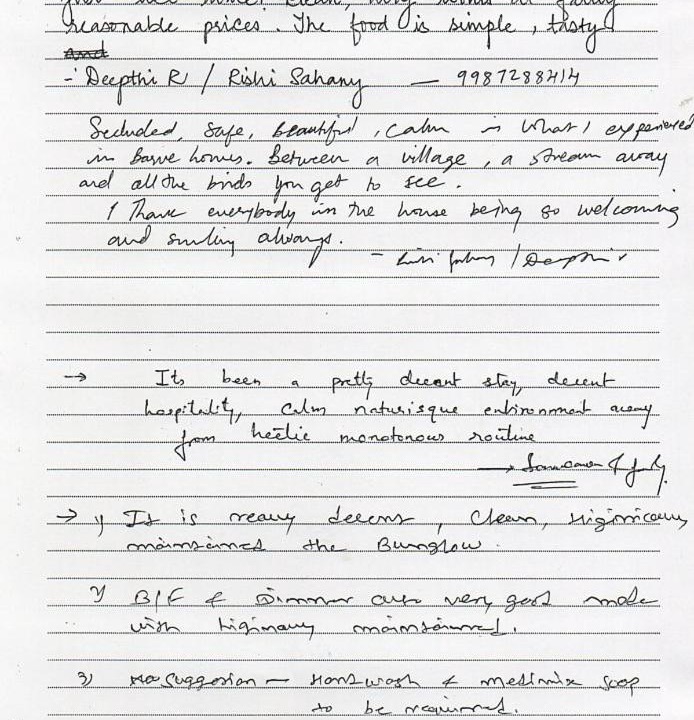 reasonable prices. The food is simple, tasty
and
- Deepthi R / Rishi Sahany — 9987288414
Secluded, safe, beautiful, calm is what I experienced
in Barve homes. Between a village, a stream away
and all the birds you get to see.
I Thank everybody in the house being so welcoming
and smiling always.
- / Deepthi r
→ Its been a pretty decent stay, decent
hospitality, calm naturisque environment away
from hectic monotonous routine
→ & July.
→ 1) It is reany decent, Clean, Higinicaly
maintained the Bunglow.
2) B/F & Dinner are very good made
with higinany maintained.
3) No Suggestion — Handwash & medimix soap
to be required.